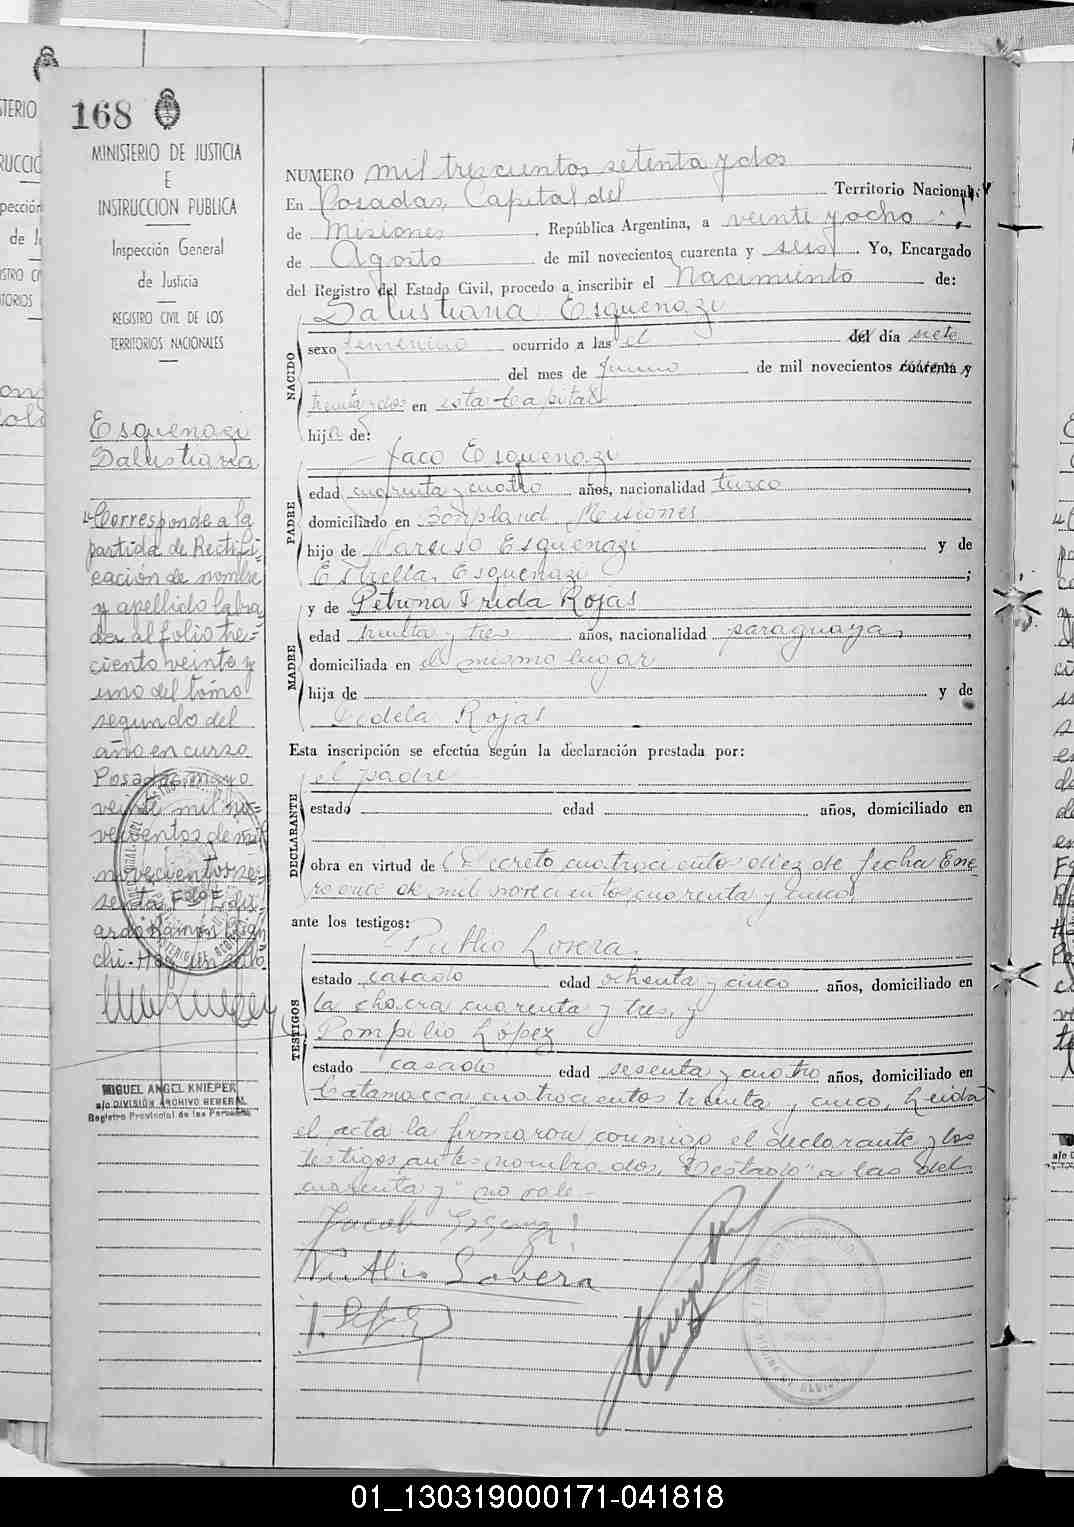 168
MINISTERIO DE JUSTICIA
E
INSTRUCCION PUBLICA
Inspección General
de Justicia
REGISTRO CIVIL DE LOS
TERRITORIOS NACIONALES
Esquenazi
Salustiana
Corresponde a la
partida de Rectifi-
cación de nombre
y apellido labra
da al folio tre-
ciento veinte y
uno del tomo
segundo del
año en curso
Posadas, mayo
veinte mil no-
vecientos de mil
novecientos se-
senta
MIGUEL ANGEL KNIEPER
a/c DIVISIÓN ARCHIVO GENERAL
Registro Provincial de las Personas
NUMERO mil trescientos setenta y dos
En Posadas, Capital del Territorio Nacional
de Misiones, República Argentina, a veinte y ocho
de Agosto de mil novecientos cuarenta y seis. Yo, Encargado
del Registro del Estado Civil, procedo a inscribir el Nacimiento de:
Salustiana Esquenazi
NACIDO
sexo femenino ocurrido a las el del día siete
del mes de Junio de mil novecientos cuarenta y
treinta y dos en esta Capital
hija de:
Jaco Esquenazi
PADRE
edad cuarenta y cuatro años, nacionalidad turco,
domiciliado en Bonpland Misiones
hijo de Narciso Esquenazi y de
Estrella Esquenazi;
y de Petrona Frida Rojas
MADRE
edad treinta y tres años, nacionalidad paraguaya,
domiciliada en el mismo lugar
hija de y de
Rojas
Esta inscripción se efectúa según la declaración prestada por:
DECLARANTE
el padre
estado edad años, domiciliado en
obra en virtud de Decreto cuatrocientos diez de fecha Ene
ro once de mil novecientos cuarenta y cinco
ante los testigos:
TESTIGOS
Publio Lovera,
estado casado edad ochenta y cinco años, domiciliado en
la chacra cuarenta y tres, y
Pompilio Lopez
estado casado edad sesenta y cuatro años, domiciliado en
Catamarca cuatrocientos treinta y cinco, Leida
el acta la firmaron conmigo el declarante y los
testigos ante nombrados, Testado "a las del
cuarenta y" no vale-
Jacob
Lovera
01_130319000171-041818